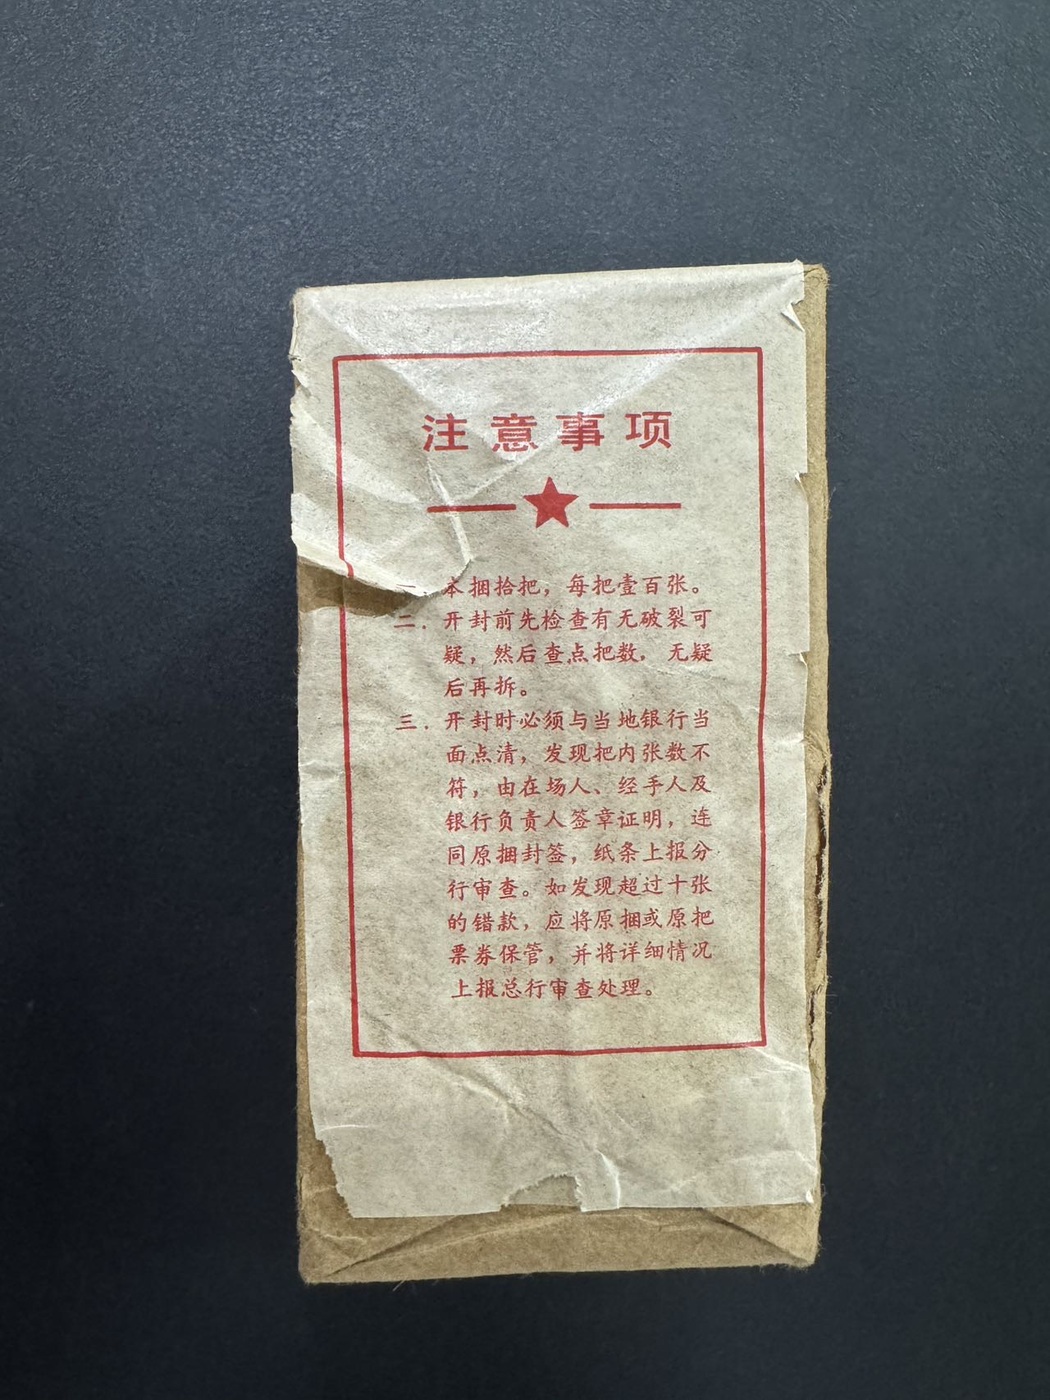 注意事项
本捆拾把，每把壹百张。
二．开封前先检查有无破裂可
疑，然后查点把数．无疑
后再拆。
三．开封时必须与当地银行当
面点清，发现把内张数不
符，由在场人、经手人及
银行负责人签章证明，连
同原捆封签，纸条上报分
行审查。如发现超过十张
的错款，应将原捆或原把
票券保管，并将详细情况
上报总行审查处理。